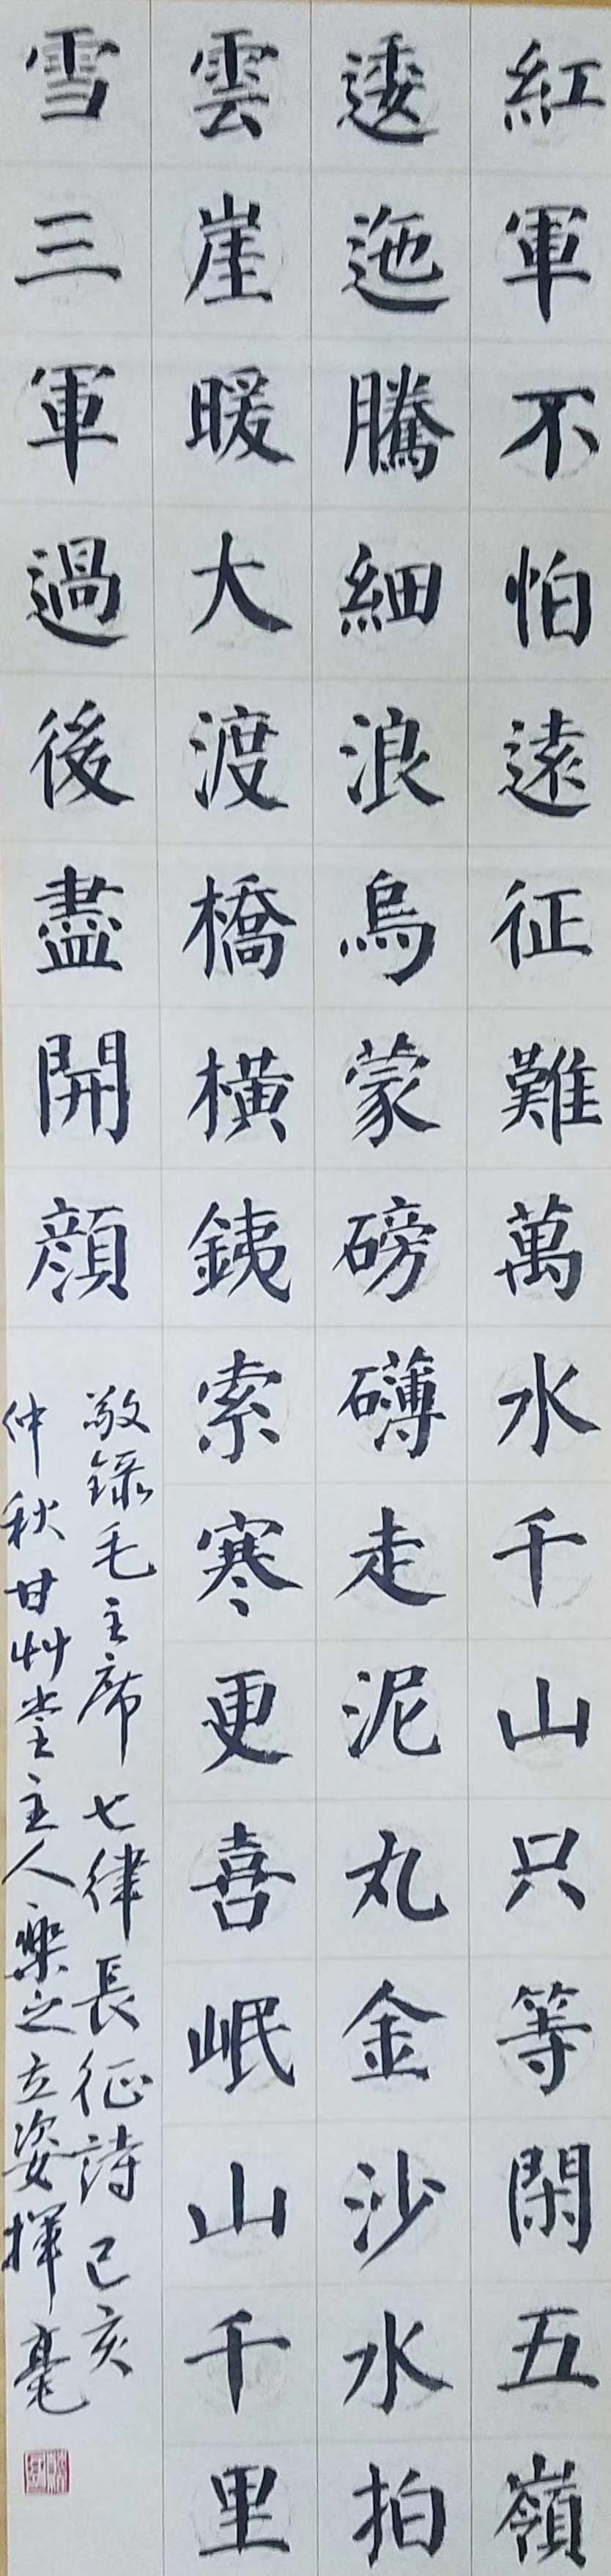 紅軍不怕遠征難萬水千山只等閑五嶺
逶迤騰細浪烏蒙磅礴走泥丸金沙水拍
雲崖暖大渡橋橫銕索寒更喜岷山千里
雪三軍過後盡開顔
敬録毛主席七律長征詩己亥
仲秋甘艸堂主人樂之立姿揮毫